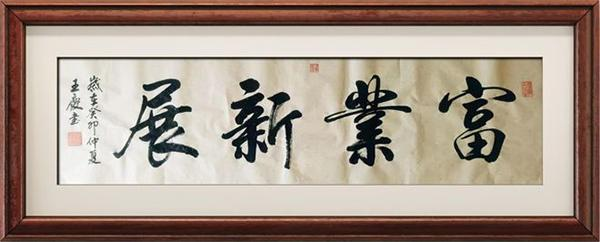 富業新展
歲在癸卯仲夏
王 書